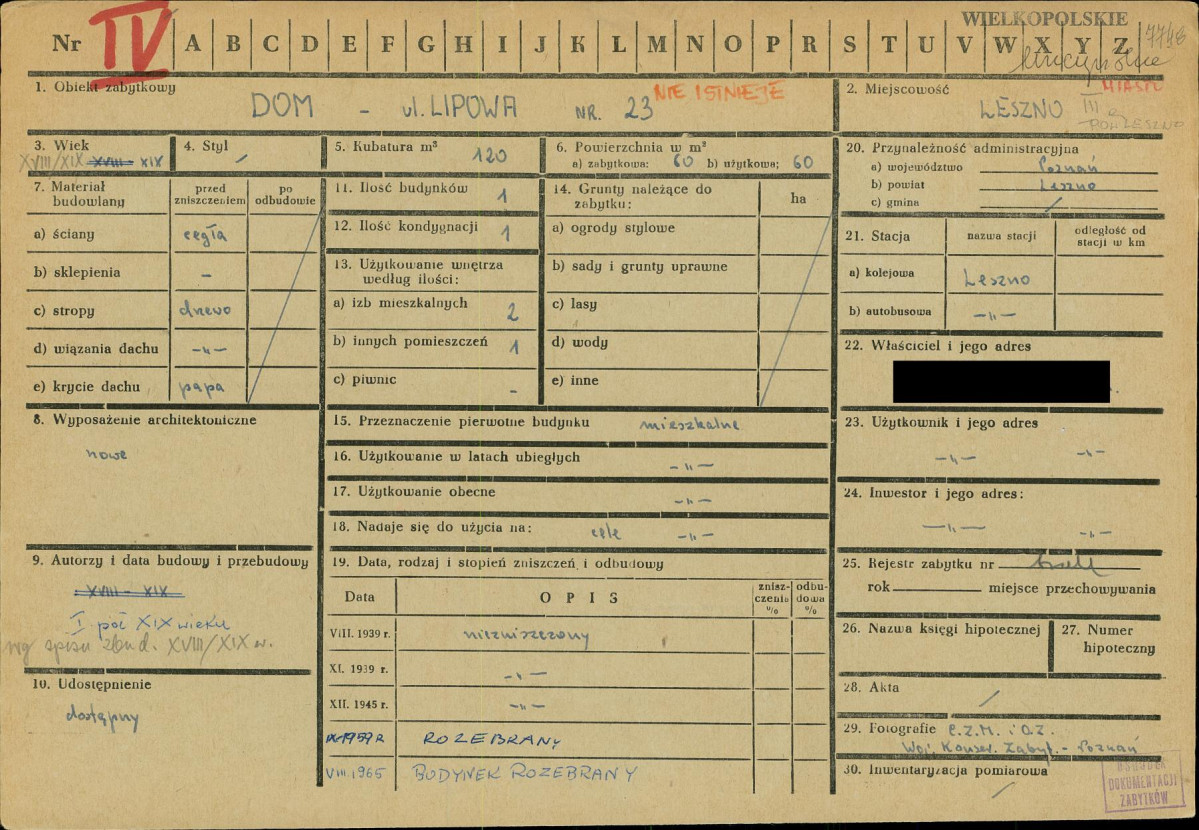 WIELKOPOLSKIE
Nr IV A B C D E F G H I J K L M N O P R S T U V W X Y Z 7748
1. Obiekt zabytkowy
DOM - ul. LIPOWA NR. 23 NIE ISTNIEJE
2. Miejscowość MIASTO
LESZNO III
POW LESZNO
3. Wiek
XVIII/XIX XVIII - XIX
4. Styl
5. Kubatura m³ 120
6. Powierzchnia w m²
a) zabytkowa: 60 b) użytkowa: 60
7. Materiał budowlany
przed zniszczeniem
po odbudowie
a) ściany cegła
b) sklepienia -
c) stropy drewo
d) wiązania dachu -„-
e) krycie dachu papa
8. Wyposażenie architektoniczne
nowe
9. Autorzy i data budowy i przebudowy
XVIII - XIX
I poł XIX wieku
wg spisu zbud. XVIII/XIX w.
10. Udostępnienie
dostępny
11. Ilość budynków 1
12. Ilość kondygnacji 1
13. Użytkowanie wnętrza
według ilości:
a) izb mieszkalnych 2
b) innych pomieszczeń 1
c) piwnic -
14. Grunty należące do
zabytku:
ha
a) ogrody stylowe
b) sady i grunty uprawne
c) lasy
d) wody
e) inne
15. Przeznaczenie pierwotne budynku mieszkalne
16. Użytkowanie w latach ubiegłych -„-
17. Użytkowanie obecne -„-
18. Nadaje się do użycia na: cele -„-
19. Data, rodzaj i stopień zniszczeń, i odbudowy
Data
OPIS
zniszczenia %
odbudowa %
VIII. 1939 r. niezniszczony
XI. 1939 r. -„-
XII. 1945 r. -„-
IX-1959 R ROZEBRANY
VIII 1965 BUDYNEK ROZEBRANY
20. Przynależność administracyjna
a) województwo Poznań
b) powiat Leszno
c) gmina
21. Stacja
nazwa stacji
odległość od
stacji w km
a) kolejowa Leszno
b) autobusowa -„-
22. Właściciel i jego adres
23. Użytkownik i jego adres
-„- -„-
24. Inwestor i jego adres:
-„- -„-
25. Rejestr zabytku nr brak
rok miejsce przechowywania
26. Nazwa księgi hipotecznej
27. Numer
hipoteczny
28. Akta
29. Fotografie C.Z.M. i O.Z.
Woj. Konser. Zabyt. - Poznań
30. Inwentaryzacja pomiarowa
OŚRODEK
DOKUMENTACJI
ZABYTKÓW